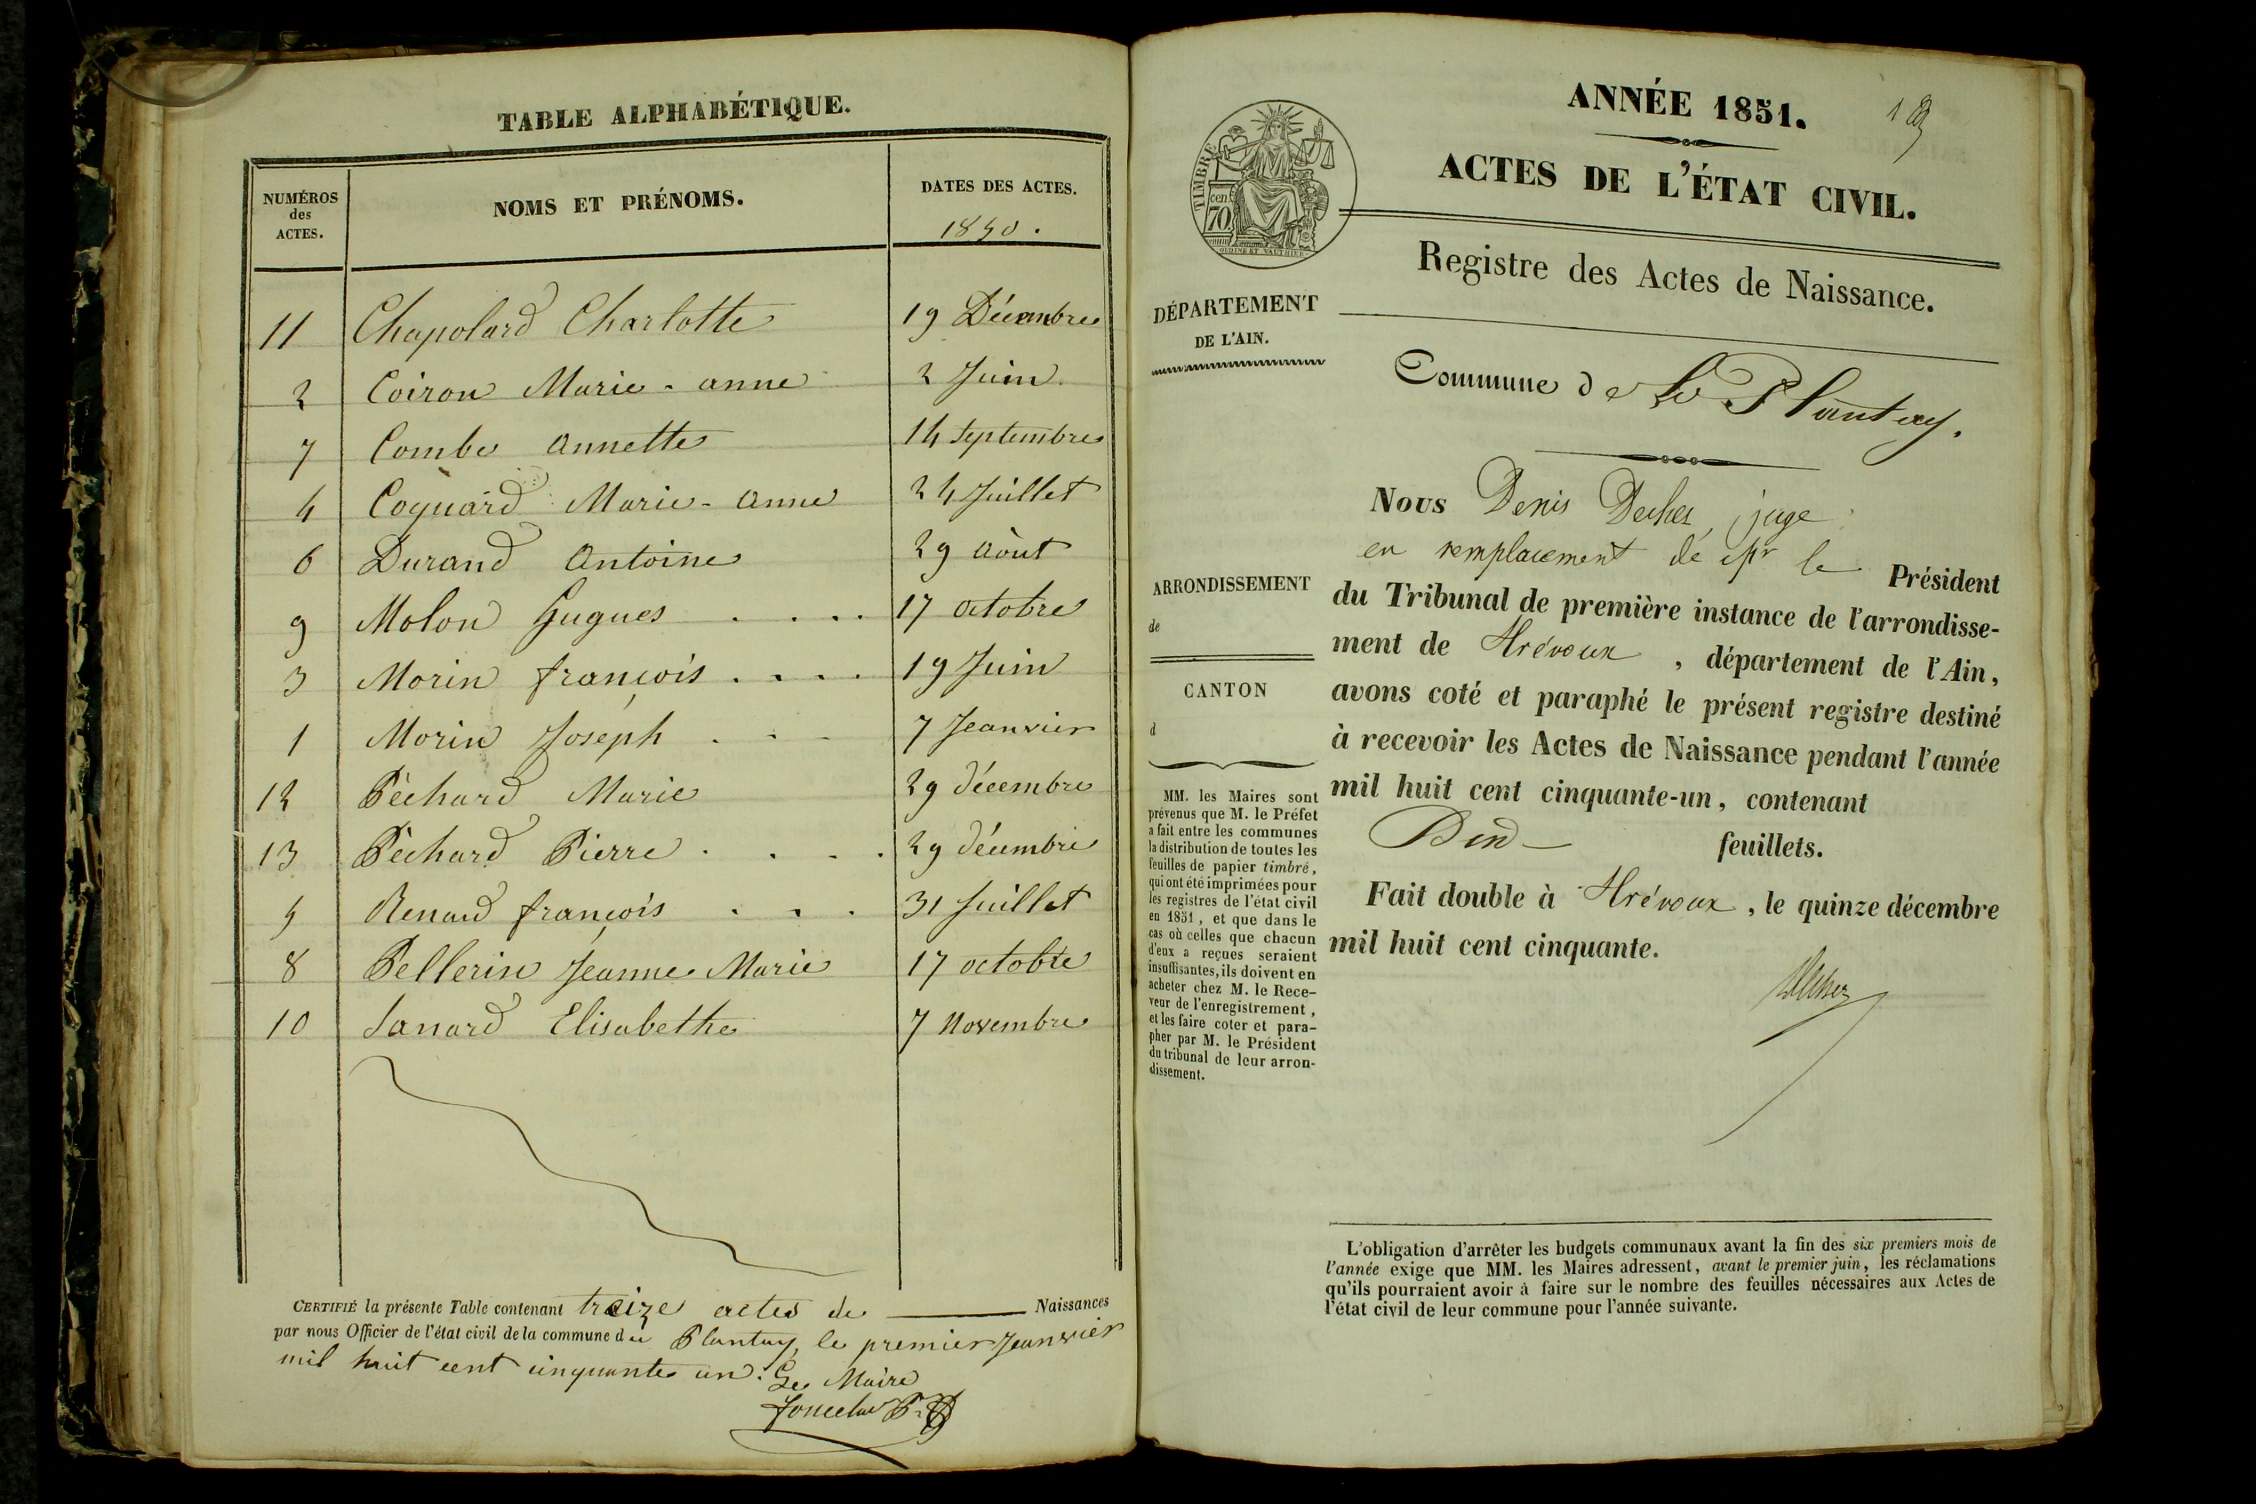 TABLE ALPHABÉTIQUE.
NUMÉROS
des
ACTES.
NOMS ET PRÉNOMS.
DATES DES ACTES.
1850.
11 Chapolard Charlotte 19 Décembre
2 Coiron Marie-anne 2 Juin
7 Combe annette 14 Septembre
4 Coquard Marie-anne 24 Juillet
6 Durand Antoine 29 Août
9 Molon Hugues . . . . 17 octobre
3 Morin françois . . . . 19 Juin
1 Morin Joseph . . . 7 Jeanvier
12 Péchard Marie 29 décembre
13 Péchard Pierre . . . . 29 décembre
5 Renard françois . . . 31 Juillet
8 Pellerin Jeanne Marie 17 octobre
10 Janard Elisabethe 7 Novembre
CERTIFIÉ la présente Table contenant treize actes de Naissances
par nous Officier de l'état civil de la commune du Plantay, le premier Jeanvier
mil huit cent cinquante un. Le Maire
ANNÉE 1851.
ACTES DE L'ÉTAT CIVIL.
TIMBRE
70 cen.
OUDINE ET VAUTHIER
Registre des Actes de Naissance.
DÉPARTEMENT
DE L'AIN.
Commune de Le Plantay.
ARRONDISSEMENT
de
CANTON
d
MM. les Maires sont
prévenus que M. le Préfet
a fait entre les communes
la distribution de toutes les
feuilles de papier timbré,
qui ont été imprimées pour
les registres de l'état civil
en 1851, et que dans le
cas où celles que chacun
d'eux a reçues seraient
insuffisantes, ils doivent en
acheter chez M. le Rece-
veur de l'enregistrement,
et les faire coter et para-
pher par M. le Président
du tribunal de leur arron-
dissement.
Nous Denis Decher, juge
en remplacement de Mr le Président
du Tribunal de première instance de l'arrondisse-
ment de Trévoux, département de l'Ain,
avons coté et paraphé le présent registre destiné
à recevoir les Actes de Naissance pendant l'année
mil huit cent cinquante-un, contenant
feuillets.
Fait double à Trévoux, le quinze décembre
mil huit cent cinquante.
L'obligation d'arrêter les budgets communaux avant la fin des six premiers mois de
l'année exige que MM. les Maires adressent, avant le premier juin, les réclamations
qu'ils pourraient avoir à faire sur le nombre des feuilles nécessaires aux Actes de
l'état civil de leur commune pour l'année suivante.